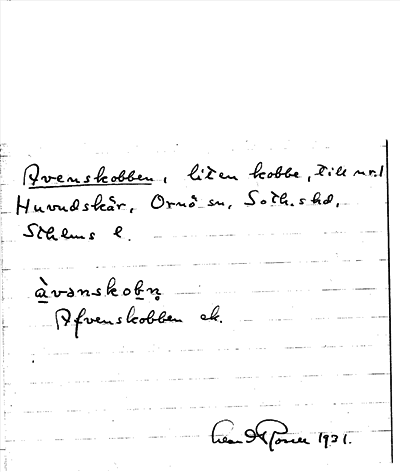 Avenskobben, liten kobbe, till nr. 1
Huvudskär, Ornö sn, Soth. skd,
Sthlms l.
àvənskobn̥
Afvenskobben ek.
1931.